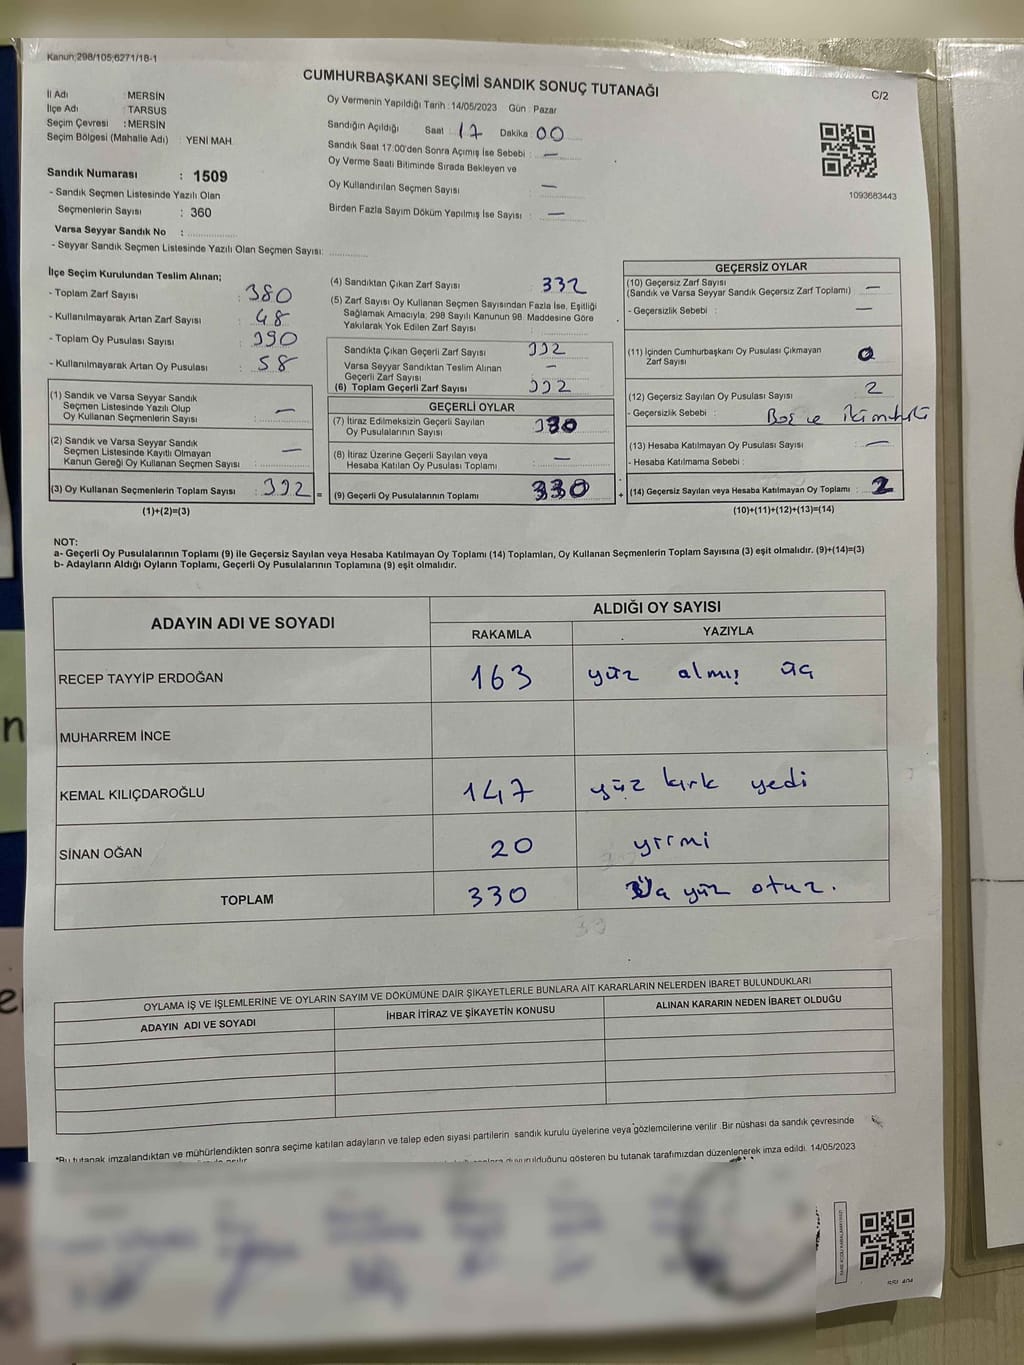 Kanun;298/105;6271/18-1
CUMHURBAŞKANI SEÇİMİ SANDIK SONUÇ TUTANAĞI
C/2
İl Adı : MERSİN
İlçe Adı : TARSUS
Seçim Çevresi : MERSİN
Seçim Bölgesi (Mahalle Adı) : YENİ MAH.
Oy Vermenin Yapıldığı Tarih : 14/05/2023 Gün : Pazar
Sandığın Açıldığı Saat : 17 Dakika : 00
Sandık Saat 17:00'den Sonra Açımış İse Sebebi : —
Oy Verme Saati Bitiminde Sırada Bekleyen ve
Oy Kullandırılan Seçmen Sayısı —
Birden Fazla Sayım Döküm Yapılmış İse Sayısı : —
1093683443
Sandık Numarası : 1509
- Sandık Seçmen Listesinde Yazılı Olan
Seçmenlerin Sayısı : 360
Varsa Seyyar Sandık No :
- Seyyar Sandık Seçmen Listesinde Yazılı Olan Seçmen Sayısı:
İlçe Seçim Kurulundan Teslim Alınan;
- Toplam Zarf Sayısı : 380
- Kullanılmayarak Artan Zarf Sayısı : 48
- Toplam Oy Pusulası Sayısı : 390
- Kullanılmayarak Artan Oy Pusulası : 58
(1) Sandık ve Varsa Seyyar Sandık
Seçmen Listesinde Yazılı Olup
Oy Kullanan Seçmenlerin Sayısı : —
(2) Sandık ve Varsa Seyyar Sandık
Seçmen Listesinde Kayıtlı Olmayan
Kanun Gereği Oy Kullanan Seçmen Sayısı : —
(3) Oy Kullanan Seçmenlerin Toplam Sayısı : 332 =
(1)+(2)=(3)
(4) Sandıktan Çıkan Zarf Sayısı : 332
(5) Zarf Sayısı Oy Kullanan Seçmen Sayısından Fazla İse, Eşitliği
Sağlamak Amacıyla, 298 Sayılı Kanunun 98. Maddesine Göre
Yakılarak Yok Edilen Zarf Sayısı :
Sandıkta Çıkan Geçerli Zarf Sayısı : 332
Varsa Seyyar Sandıktan Teslim Alınan
Geçerli Zarf Sayısı : —
(6) Toplam Geçerli Zarf Sayısı : 332
GEÇERLİ OYLAR
(7) İtiraz Edilmeksizin Geçerli Sayılan
Oy Pusulalarının Sayısı : 330
(8) İtiraz Üzerine Geçerli Sayılan veya
Hesaba Katılan Oy Pusulası Toplamı : —
(9) Geçerli Oy Pusulalarının Toplamı : 330 +
GEÇERSİZ OYLAR
(10) Geçersiz Zarf Sayısı
(Sandık ve Varsa Seyyar Sandık Geçersiz Zarf Toplamı) : —
- Geçersizlik Sebebi : —
(11) İçinden Cumhurbaşkanı Oy Pusulası Çıkmayan
Zarf Sayısı : 0
(12) Geçersiz Sayılan Oy Pusulası Sayısı : 2
- Geçersizlik Sebebi : Boş ve iki mühür
(13) Hesaba Katılmayan Oy Pusulası Sayısı : —
- Hesaba Katılmama Sebebi :
(14) Geçersiz Sayılan veya Hesaba Katılmayan Oy Toplamı : 2
(10)+(11)+(12)+(13)=(14)
NOT:
a- Geçerli Oy Pusulalarının Toplamı (9) ile Geçersiz Sayılan veya Hesaba Katılmayan Oy Toplamı (14) Toplamları, Oy Kullanan Seçmenlerin Toplam Sayısına (3) eşit olmalıdır. (9)+(14)=(3)
b- Adayların Aldığı Oyların Toplamı, Geçerli Oy Pusulalarının Toplamına (9) eşit olmalıdır.
ADAYIN ADI VE SOYADI ALDIĞI OY SAYISI
RAKAMLA YAZIYLA
RECEP TAYYİP ERDOĞAN 163 yüz almış üç
MUHARREM İNCE
KEMAL KILIÇDAROĞLU 147 yüz kırk yedi
SİNAN OĞAN 20 yirmi
TOPLAM 330 Üç yüz otuz.
OYLAMA İŞ VE İŞLEMLERİNE VE OYLARIN SAYIM VE DÖKÜMÜNE DAİR ŞİKAYETLERLE BUNLARA AİT KARARLARIN NELERDEN İBARET BULUNDUKLARI
ADAYIN ADI VE SOYADI İHBAR İTİRAZ VE ŞİKAYETİN KONUSU ALINAN KARARIN NEDEN İBARET OLDUĞU
*Bu tutanak imzalandıktan ve mühürlendikten sonra seçime katılan adayların ve talep eden siyasi partilerin sandık kurulu üyelerine veya gözlemcilerine verilir. Bir nüshası da sandık çevresinde
duyurulduğunu gösteren bu tutanak tarafımızdan düzenlenerek imza edildi. 14/05/2023